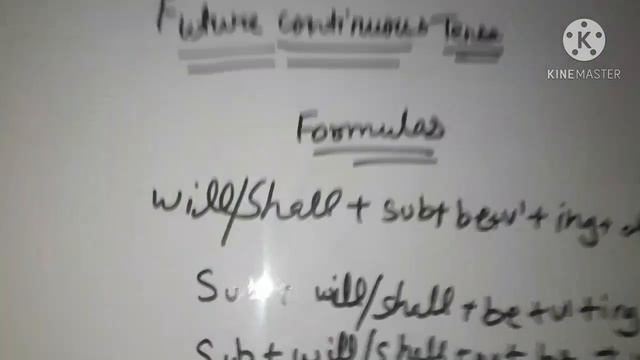 Future continuous Tense
KINEMASTER
Formulas
will/shall + sub + be + v' + ing +
Sub + will/shall + be + v1 + ing
Sub + will/shall + not be +